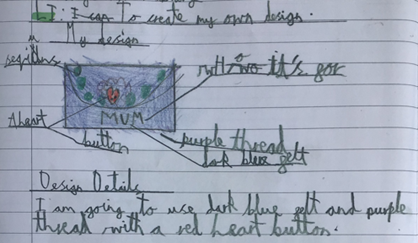 LI: I can To create my own design.
My design
sequins
it's for
MUM
heart
button
purple thread
dark blue felt
Design Details
I am going to use dark blue felt and purple
thread with a red heart button.